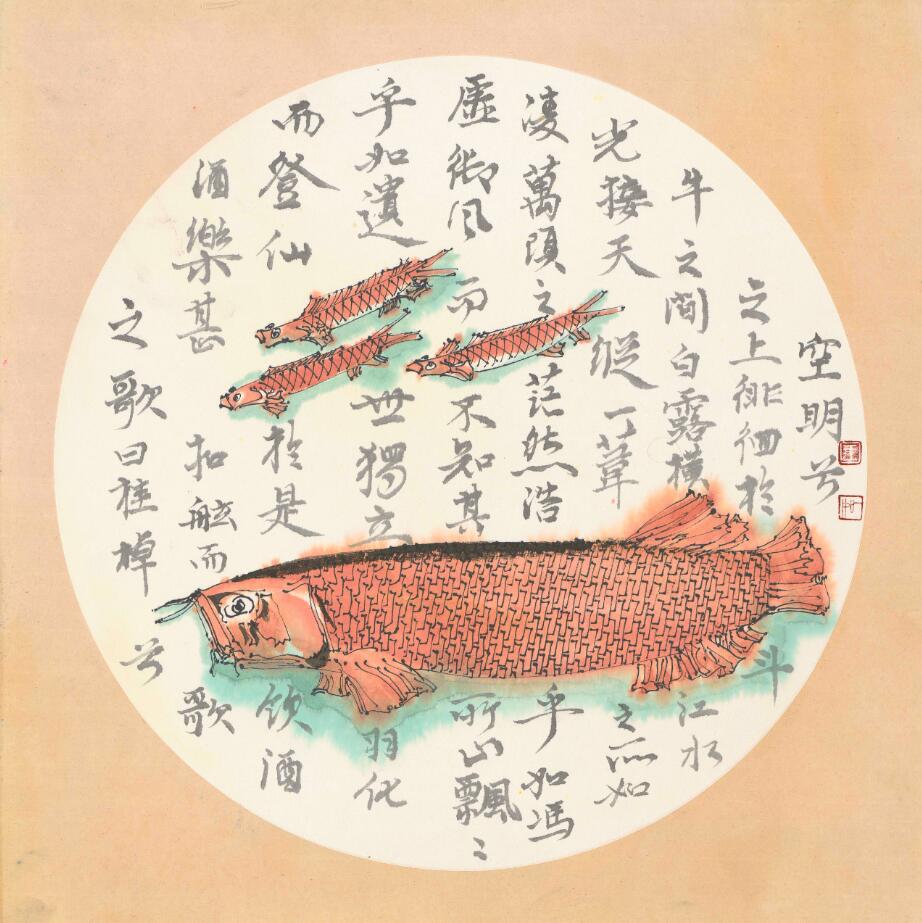 空明兮
之上徘徊於斗
牛之間白露橫江水
光接天縱一葦之所如
淩萬頃之茫然浩乎如馮
虛御风而不知其所止飄〻
乎如遺世獨立羽化
而登仙於是飲酒
酒樂甚扣舷而歌
之歌曰桂棹兮